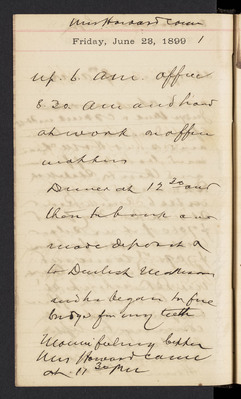 Mrs Howard Came
Friday, June 23, 1899 1
up 6 am office
8.30 am and hard
at work on office
matters
Dinner at 12 30 and
then to bank and
made deposit &
to Dentist
and he began to fix
bridge for my teeth
Mamie feeling better
Mrs Howard came
at 11 30 PM